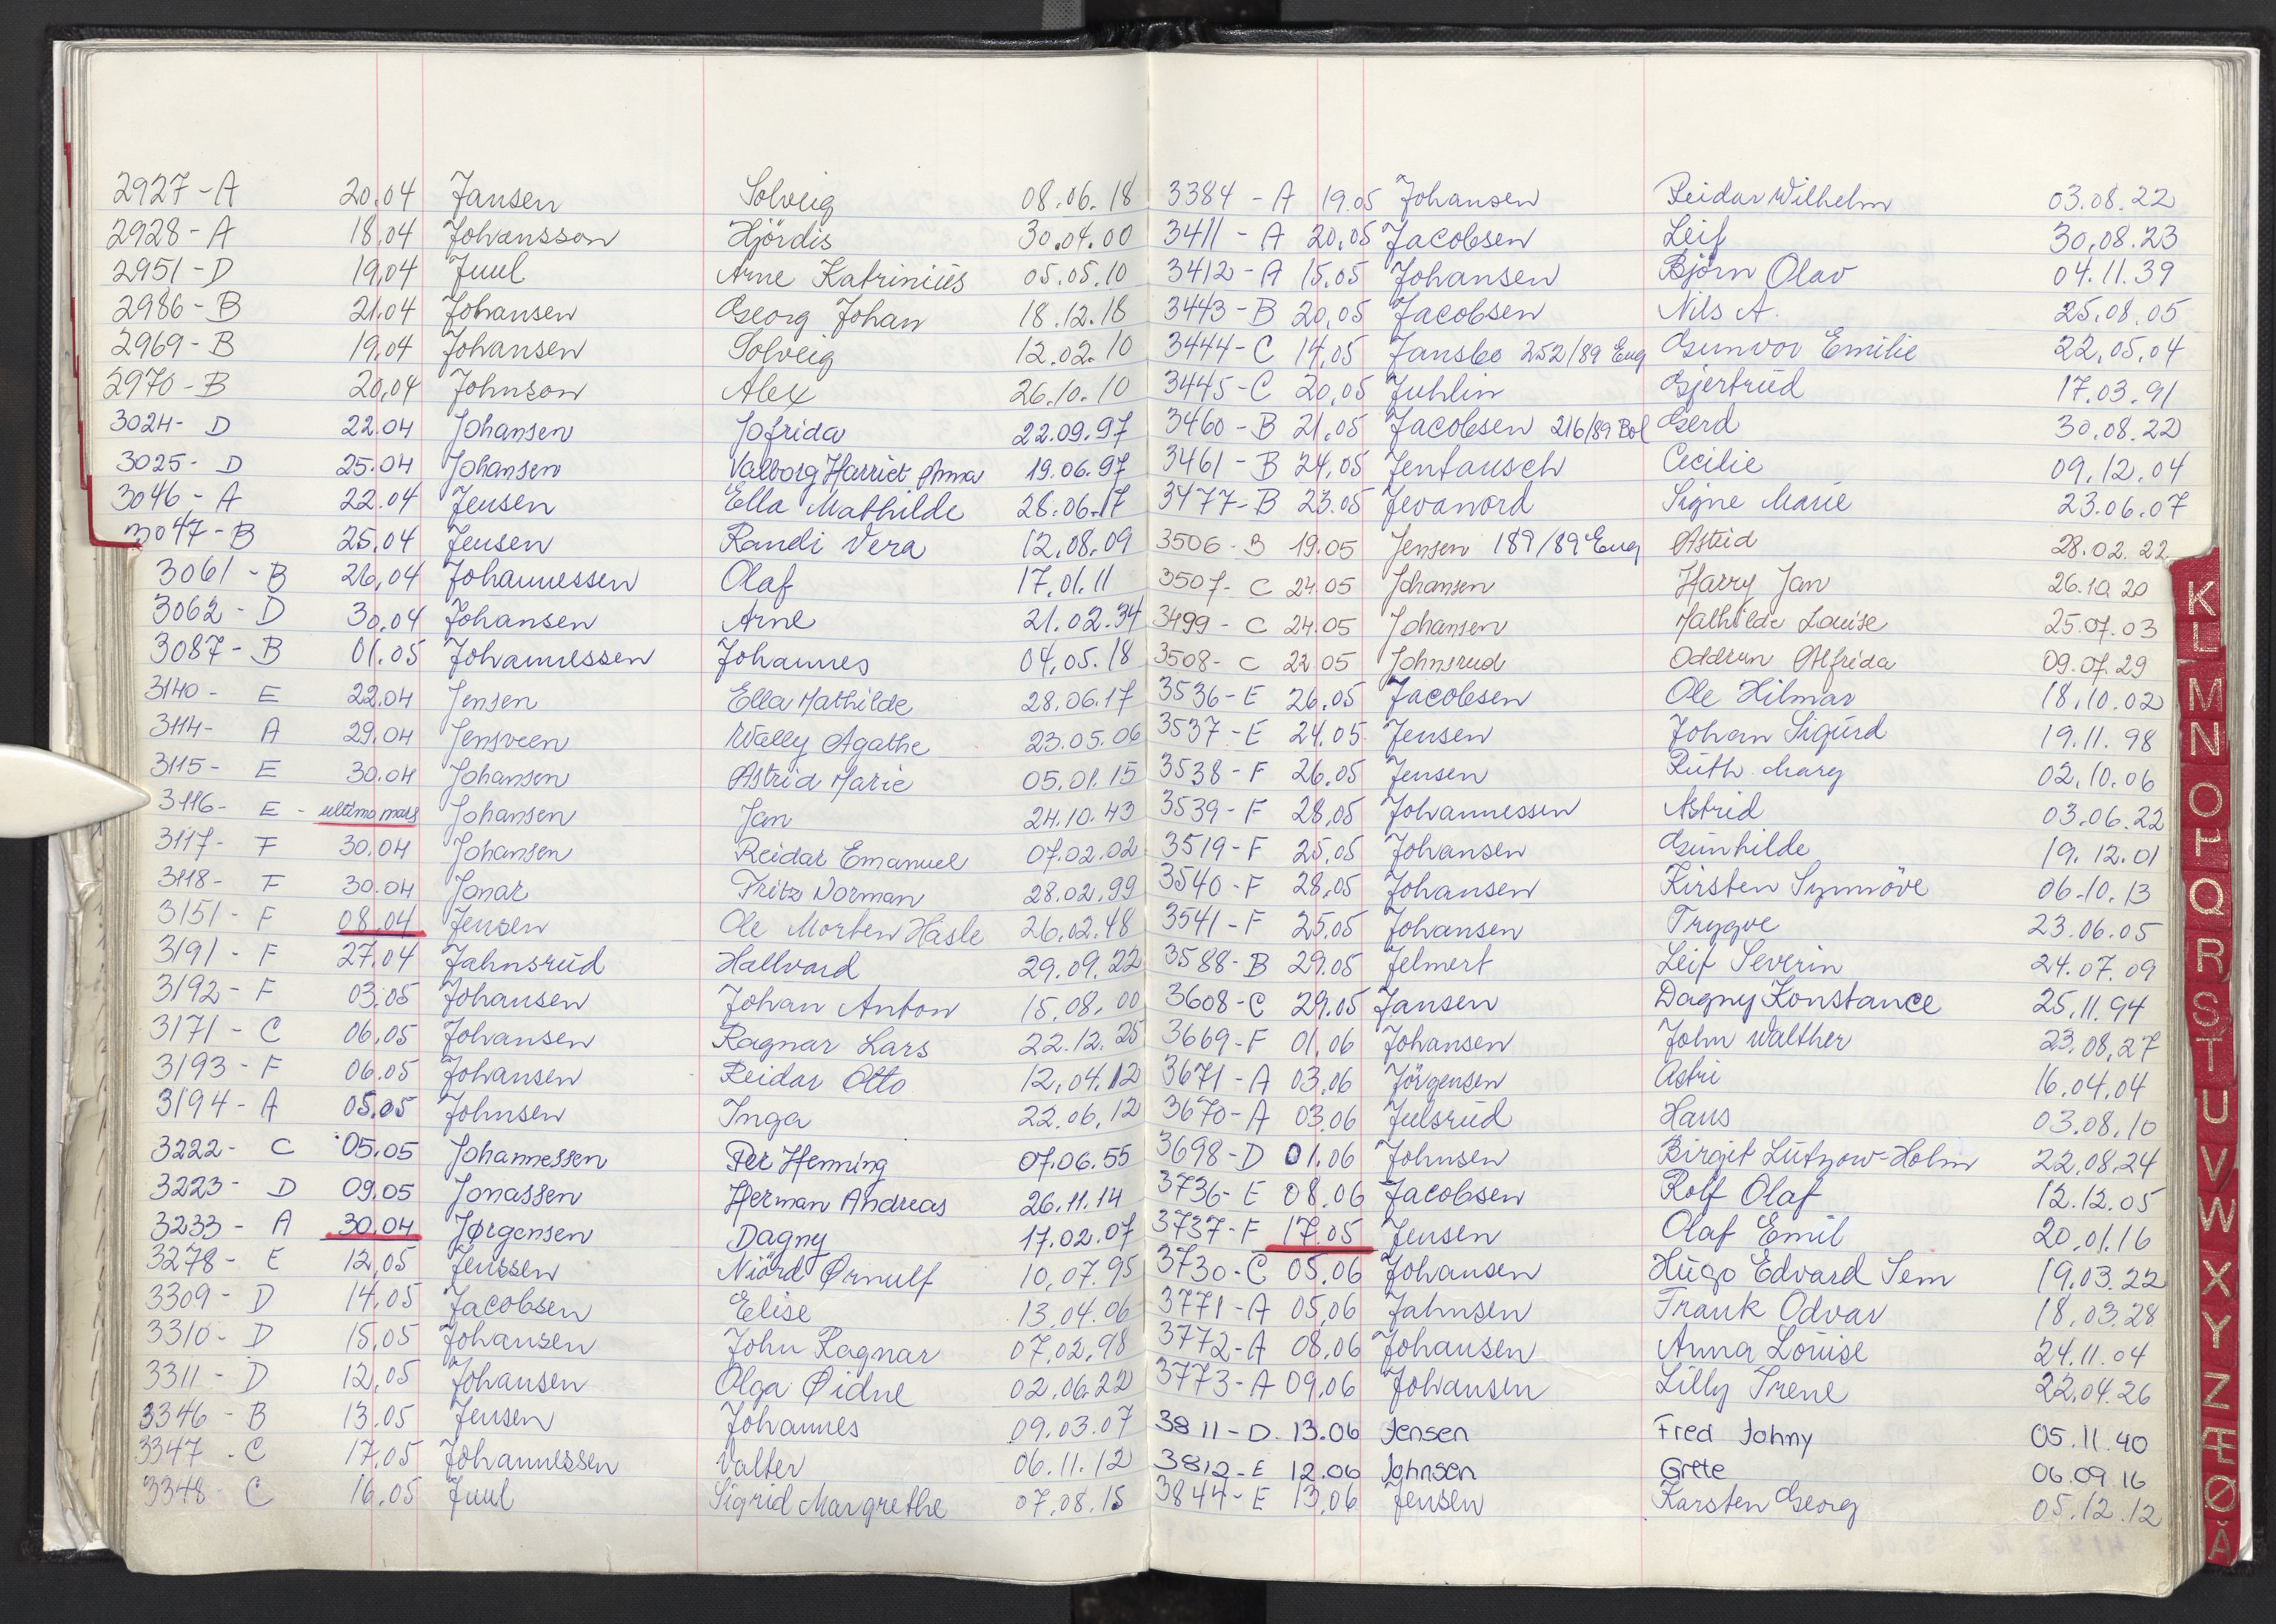 2927-A 20.04 Jansen Solveig 08.06.18
2928-A 18.04 Johansson Hjördis 30.04.00
2951-D 19.04 Juul Arne Katrinius 05.05.10
2986-B 21.04 Johansen Georg Johan 18.12.18
2969-B 19.04 Johansen Solveig 12.02.10
2970-B 20.04 Johnson Alex 26.10.10
3024- D 22.04 Johansen Jofrida 22.09.97
3025- D 25.04 Johansen Valborg Harriet Anna 19.06.97
3046-A 22.04 Jensen Ella Mathilde 28.06.17
3047-B 25.04 Jensen Randi Vera 12.08.09
3061-B 26.04 Johannessen Olaf 17.01.11
3062-D 30.04 Johansen Arne 21.02.34
3087-B 01.05 Johannessen Johannes 04.05.18
3140- E 22.04 Jensen Ella Mathilde 28.06.17
3114- A 29.04 Jensveen Wally Agathe 23.05.06
3115- E 30.04 Johansen Astrid Marie 05.01.15
3116- E - ultimo mars Johansen Jan 24.10.43
3117- F 30.04 Johansen Reidar Emanuel 07.02.02
3118- F 30.04 Jonar Fritz Norman 28.02.99
3151-F 08.04 Jensen Ole Morten Hasle 26.02.48
3191-F 27.04 Jahnsrud Hallvard 29.09.22
3192-F 03.05 Johansen Johan Anton 15.08.00
3171-C 06.05 Johansen Ragnar Lars 22.12.25
3193-F 06.05 Johansen Reidar Otto 12.04.12
3194-A 05.05 Johnsen Inga 22.06.12
3222- C 05.05 Johannessen Per Henning 07.06.55
3223- D 09.05 Jonassen Herman Andreas 26.11.14
3233- A 30.04 Jørgensen Dagny 17.02.07
3278- E 12.05 Jenssen Niörd Ørnulf 10.07.95
3309- D 14.05 Jacobsen Elise 13.04.06
3310- D 15.05 Johansen John Ragnar 07.02.98
3311-D 12.05 Johansen Olga Øidne 02.06.22
3346-B 13.05 Jensen Johannes 09.03.07
3347-C 17.05 Johannessen Valter 06.11.12
3348-C 16.05 Juul Sigrid Margrethe 07.08.15
3384-A 19.05 Johansen Reidar Wilhelm 03.08.22
3411-A 20.05 Jacobsen Leif 30.08.23
3412-A 15.05 Johansen Bjørn Olav 04.11.39
3443-B 20.05 Jacobsen Nils A. 25.08.05
3444-C 14.05 Jansbo 252/89 Eug Gunvor Emilie 22.05.04
3445-C 20.05 Juhlin Gjertrud 17.03.91
3460-B 21.05 Jacobsen 216/89 Bol Gerd 30.08.22
3461-B 24.05 Jentausch Cecilie 09.12.04
3477-B 23.05 Jevanord Signe Marie 23.06.07
3506-B 19.05 Jensen 189/89 Eug Astrid 28.02.22
3507-C 24.05 Johansen Harry Jan 26.10.20
3499-C 24.05 Johansen Mathilde Louise 25.07.03
3508-C 22.05 Johnsrud Oddrun Alfrida 09.07.29
3536-E 26.05 Jacobsen Ole Hilmar 18.10.02
3537-E 24.05 Jensen Johan Sigurd 19.11.98
3538-F 26.05 Jensen Ruth Marg 02.10.06
3539-F 28.05 Johannessen Astrid 03.06.22
3519-F 25.05 Johansen Gunhilde 19.12.01
3540-F 28.05 Johansen Kirsten Synnöve 06.10.13
3541-F 25.05 Johansen Trygve 23.06.05
3588-B 29.05 Jelmert Leif Severin 24.07.09
3608-C 29.05 Jansen Dagny Konstance 25.11.94
3669-F 01.06 Johansen John Walther 23.08.27
3671-A 03.06 Jörgensen Astri 16.04.04
3670-A 03.06 Julsrud Hans 03.08.10
3698-D 01.06 Johnsen Birgit Lützow-Holm 22.08.24
3736-E 08.06 Jacobsen Rolf Olaf 12.12.05
3737-F 17.05 Jensen Olaf Emil 20.01.16
3730-C 05.06 Johansen Hugo Edvard Sem 19.03.22
3771-A 05.06 Jahnsen Frank Odvar 18.03.28
3772-A 08.06 Johansen Anna Louise 24.11.04
3773-A 09.06 Johansen Lilly Irene 22.04.26
3811-D. 13.06 Jensen Fred Johny 05.11.40
3812-E 12.06 Johnsen Grete 06.09.16
3844-E 13.06 Jensen Karsten Georg 05.12.12
K
L
M
N
O
P
Q
R
S
T
U
V
W
X
Y
Z
Æ
Ø
Å